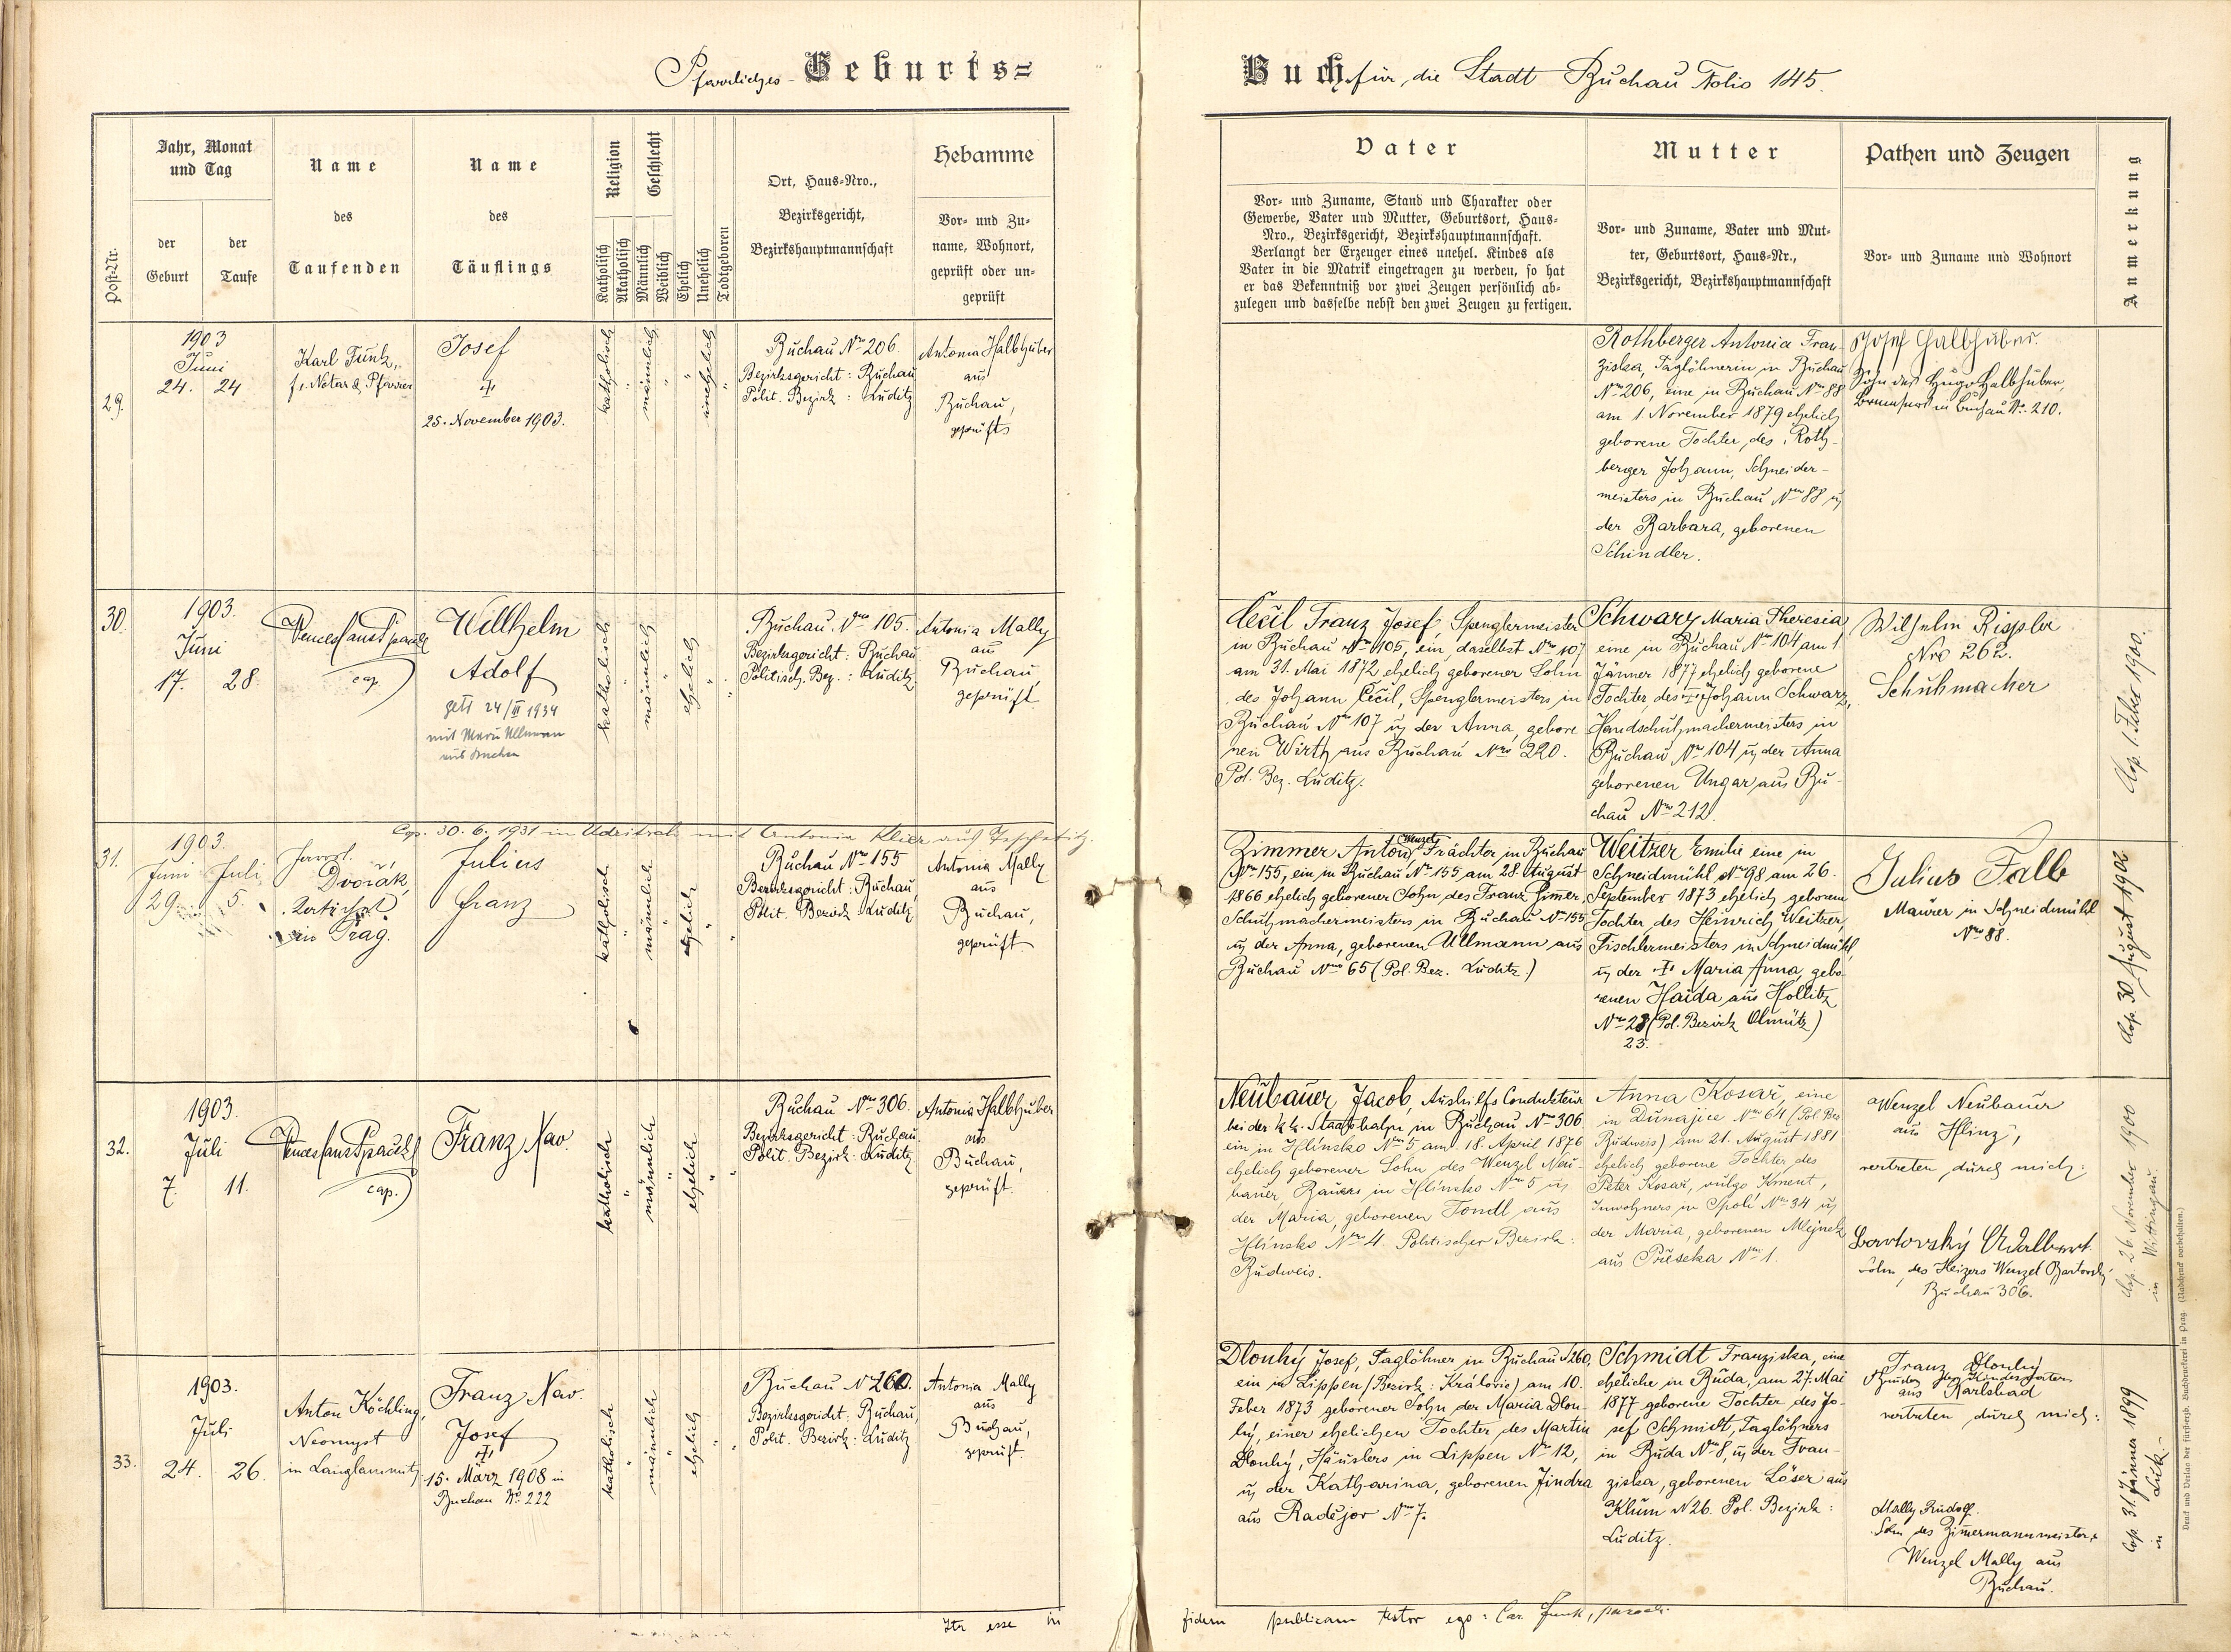 Pfarrliches Geburts=
Buch für die Stadt Buchau Folio 145.
Post-Nr.
Jahr, Monat
und Tag
der
Geburt
der
Taufe
Name
des
Taufenden
Name
des
Täuflings
Religion
Katholisch
Akatholisch
Geschlecht
Männlich
Weiblich
Ehelich
Unehelich
Todtgeboren
Ort, Haus-Nro.,
Bezirksgericht,
Bezirkshauptmannschaft
Hebamme
Vor- und Zu-
name, Wohnort,
geprüft oder un-
geprüft
Vater
Vor- und Zuname, Stand und Charakter oder
Gewerbe, Vater und Mutter, Geburtsort, Haus-
Nro., Bezirksgericht, Bezirkshauptmannschaft.
Verlangt der Erzeuger eines unehel. Kindes als
Vater in die Matrik eingetragen zu werden, so hat
er das Bekenntniß vor zwei Zeugen persönlich ab-
zulegen und dasselbe nebst den zwei Zeugen zu fertigen.
Mutter
Vor- und Zuname, Vater und Mut-
ter, Geburtsort, Haus-Nr.,
Bezirksgericht, Bezirkshauptmannschaft
Pathen und Zeugen
Vor- und Zuname und Wohnort
Anmerkung
29.
1903
Juni
24. 24
Karl Funk,
f. Notar & Pfarrer
Josef
†
25. November 1903.
katholisch
"
männlich
"
"
unehelich
"
Buchau Nro 206.
Bezirksgericht: Buchau
Polit. Bezirk: Luditz
Antonia Halbhuber
aus
Buchau,
geprüft
Rothberger Antonia Fran-
ziska, Taglöhnerin in Buchau
Nro 206, eine in Buchau Nro 88
am 1 November 1879 ehelich
geborene Tochter des Roth-
berger Johann, Schneider-
meisters in Buchau Nro 88 u
der Barbara, geborenen
Schindler.
Josef Halbhuber.
Sohn des Hugo Halbhuber,
in Buchau No. 210.
30.
1903.
Juni
17. 28.
cap.
Willhelm
Adolf
getr 24/II 1934
mit Marie Ullmann
aus Buchau
katholisch
"
männlich
"
ehelich
"
"
Buchau Nro 105.
Bezirksgericht: Buchau
Politisch. Bez.: Luditz
Antonia Mally
aus
Buchau,
geprüft
Cečil Franz Josef Spenglermeister
in Buchau Nro 105, ein daselbst Nro 107
am 31. Mai 1872 ehelich geborener Sohn
des Johann Cečil, Spenglermeisters in
Buchau Nro 107 u der Anna, gebore
nen Wirth aus Buchau Nro 220.
Pol. Bez. Luditz.
Schwarz Maria Theresia
eine in Buchau Nro 104 am 1
Jänner 1877 ehelich geborene
Tochter des † Johann Schwarz,
Handschuhmachermeisters in
Buchau Nro 104 u der Anna
geborenen Ungar aus Bu-
chau Nro 212.
Wilhelm Rippler
Nro 262.
Schuhmacher
Cop. 1. Feber 1900.
Cop. 30. 6. 1931 in Udritsch mit Antonia Klier aus
31.
1903.
Juni Juli
29. 5.
Dvořák,
in Prag.
Julius
Franz
katholisch
"
männlich
"
ehelich
"
"
Buchau Nro 155
Bezirksgericht: Buchau,
Polit. Bezirk: Luditz
Antonia Mally
aus
Buchau,
geprüft
Zimmer Anton Wenzel Frächter in Buchau
Nro 155, ein in Buchau Nro 155 am 28. August
1866 ehelich geborener Sohn des Franz Zimmer
Schuhmachermeisters in Buchau Nro 155
u der Anna, geborenen Ullmann aus
Buchau Nro 65 (Pol. Bez. Luditz.)
Weitzer Emilie eine in
Schneidmühl Nro 98 am 26.
September 1873 ehelich geborene
Tochter des Heinrich Weitzer,
Tischlermeisters in Schneidmühl,
u der † Maria Anna, gebo-
renen Haida aus Hollitz
Nro 28 (Pol. Bezirk Olmütz)
23.
Julius Falb
Maurer in Schneidmühl
Nro 88.
Cop. 30 August 1902
32.
1903.
Juli
7. 11.
cap.
Franz Xav.
katholisch
"
männlich
"
ehelich
"
Buchau Nro 306.
Bezirksgericht: Buchau,
Polit. Bezirk: Luditz
Antonia Halbhuber
aus
Buchau,
geprüft.
Neubauer Jacob, Aushilfs Conducteur
bei der k k. Staatsbahn in Buchau Nro 306.
ein in Hlinsko Nro 5 am 18. April 1876
ehelich geborener Sohn des Wenzel Neu-
bauer, Bauers in Hlinsko Nro 5 u
der Maria, geborenen Tondl aus
Hlinsko Nro 4. Politischer Bezirk:
Budweis.
Anna Kosař, eine
in Dunajice Nro 64 (Pol. Bez
Budweis) am 21. August 1881
ehelich geborene Tochter des
Peter Kosař, vulgo Kment,
Inwohners in Spoli Nro 34 u
der Maria, geborenen Mlejnek
aus Přeseka Nro 1.
Wenzel Neubauer
aus Hlinz,
vertreten durch mich:
Bartovský Adalbert
Sohn des Heizers Wenzel Bartovský
Buchau 306.
Cop. 26. November 1900
in Wittingau.
33.
1903.
Juli
24. 26.
Anton Köchling,
Neomyst
in Langlammitz
Franz Xav.
Josef
†
15. März 1908 in
Buchau No. 222
katholisch
"
männlich
"
ehelich
"
"
Buchau N 260.
Bezirksgericht: Buchau,
Polit. Bezirk: Luditz
Antonia Mally
aus
Buchau,
geprüft.
Dlouhý Josef, Taglöhner in Buchau N 260,
ein in Lippen (Bezirk: Kralovic) am 10.
Feber 1873 geborener Sohn der Maria Dlou-
hý, einer ehelichen Tochter des Martin
Dlouhý, Häuslers in Lippen Nro 12,
u der Katharina, geborenen Jindra
aus Radějov Nro 7.
Schmidt Franziska, eine
eheliche in Buda, am 27. Mai
1877 geborene Tochter des Jo-
sef Schmidt, Taglöhners
in Buda Nro 8, u der Fran-
ziska, geborenen Löser aus
Klum N 26. Pol. Bezirk:
Luditz.
Franz Dlouhý
Bruder des Kindesvaters
aus Karlsbad
vertreten durch mich:
Mally Rudolf.
Sohn des Zimmermannmeisters
Wenzel Mally aus
Buchau.
Cop. 31. Jänner 1899
in Luk.
Druck und Verlag der fürsterzb. Buchdruckerei in Prag. (Nachdruck vorbehalten.)
Ita esse in fidem publicam testor ego: Car. Funk, paroch.